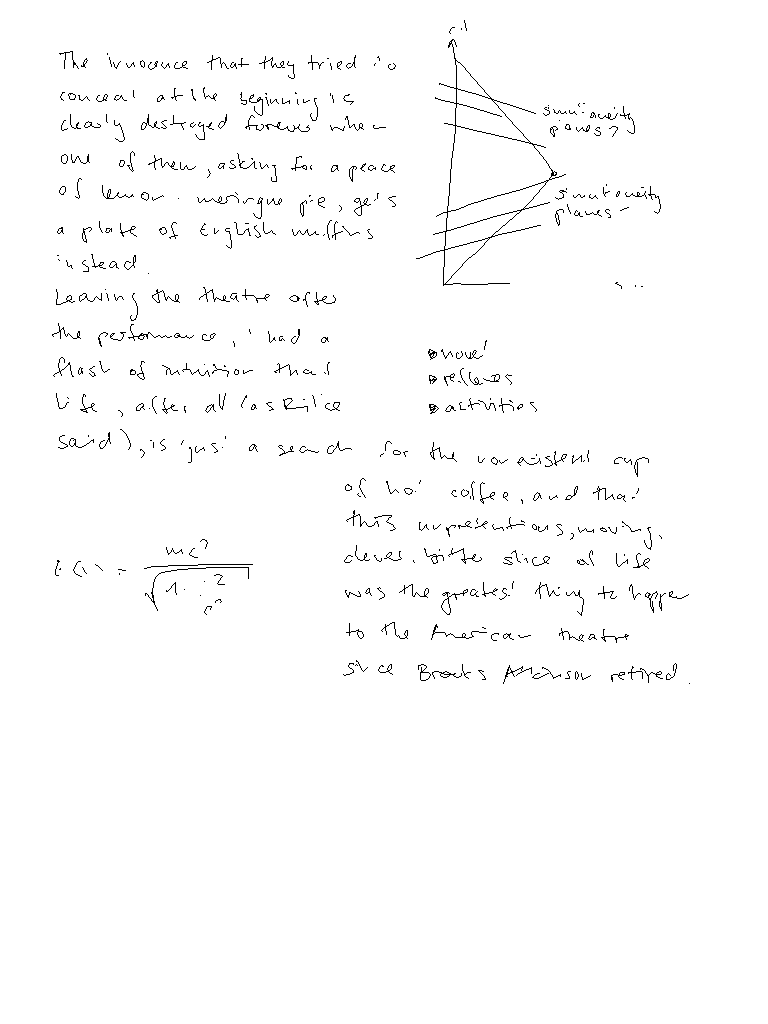 The innocence that they tried to
conceal at the beginning is
clearly destroyed forever when
one of them, asking for a peace
of lemon-meringue pie, gets
a plate of English muffins
instead.
Leaving the theatre after
the performance, I had a
flash of intuition that
life, after all (as Rilke
said), is just a search for the nonexistent cup
of hot coffee, and that
this unpretentious, moving,
clever, bitter slice of life
was the greatest thing to happen
to the American theatre
since Brooks Atkinson retired.
simultaneity
planes
simultaneity
planes
novel
reflexes
activities
mc²